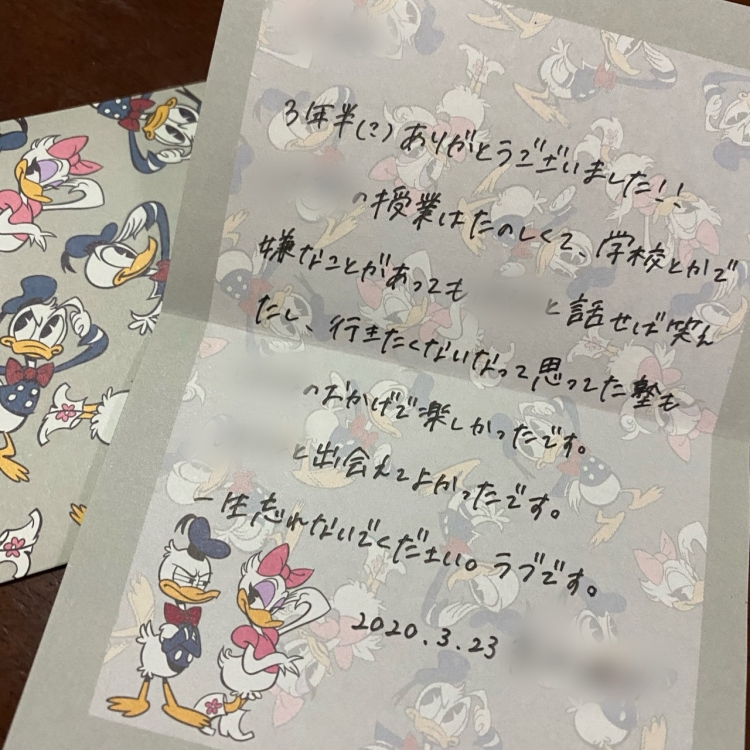 3年半(?)ありがとうございました!!
の授業はたのしくて、学校とかで
嫌なことがあっても と話せば笑え
たし、行きたくないなって思ってた塾も
のおかげで楽しかったです。
と出会えてよかったです。
一生忘れないでください。ラブです。
2020.3.23